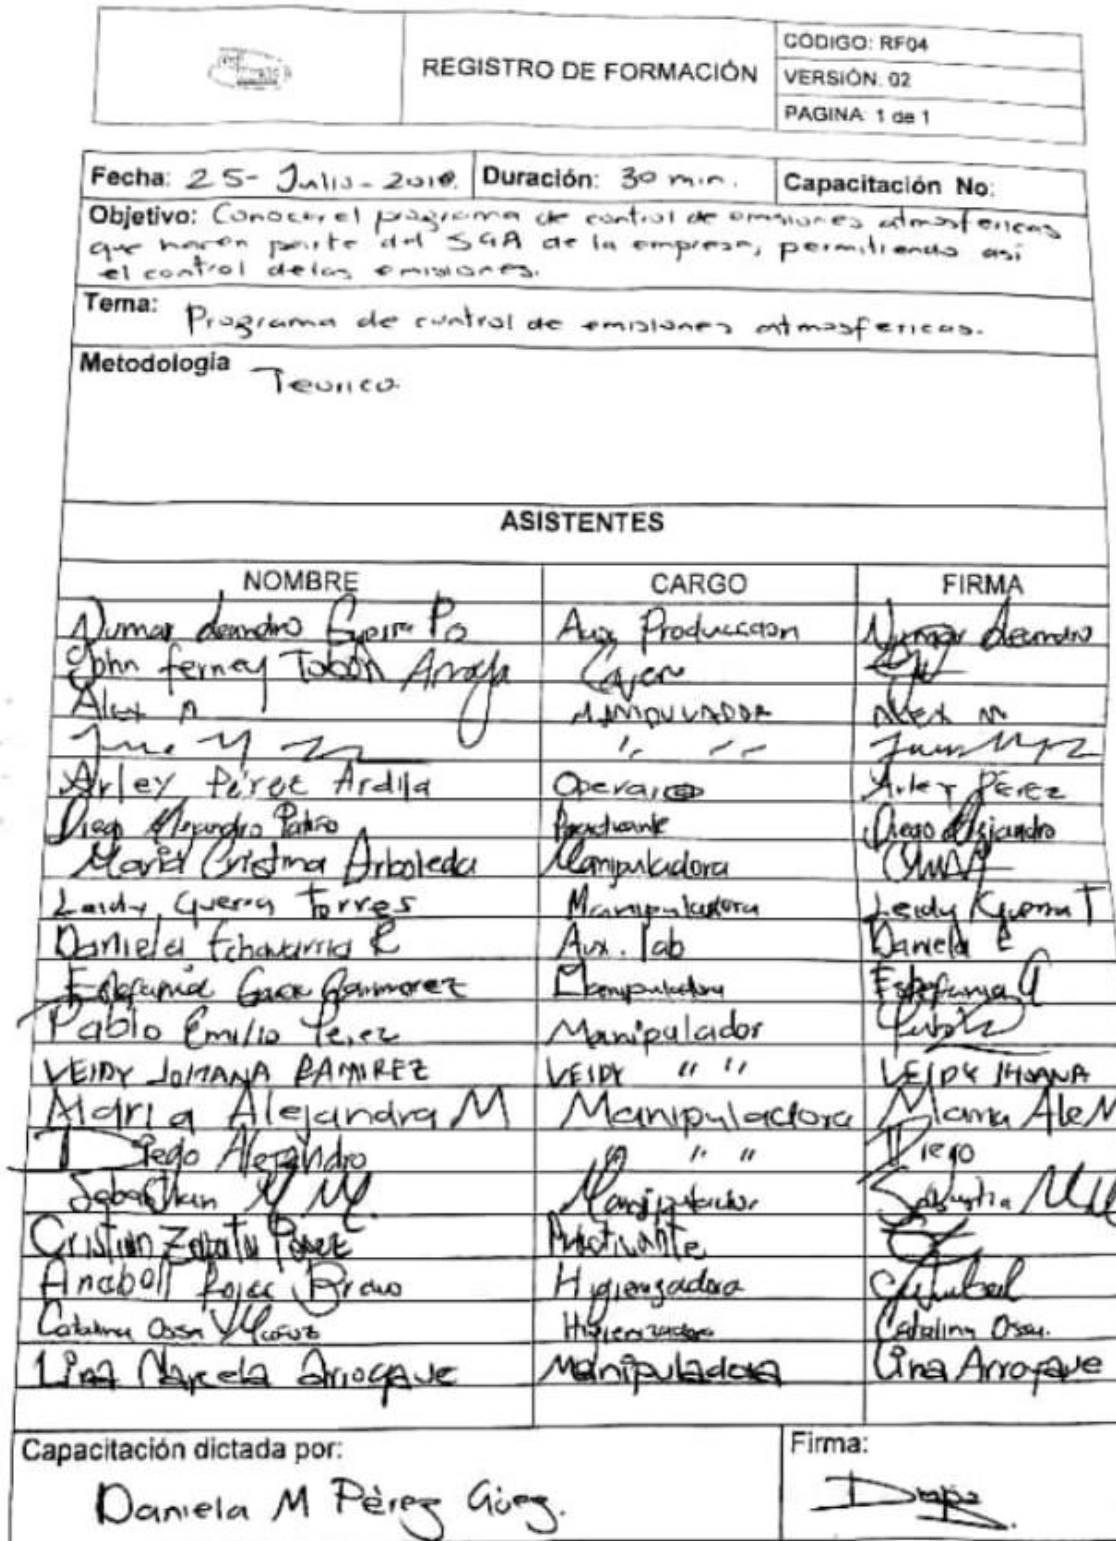 REGISTRO DE FORMACIÓN
CÓDIGO: RF04
VERSIÓN. 02
PAGINA: 1 de 1
Fecha: 25- Julio - 2018. Duración: 30 min. Capacitación No:
Objetivo: Conocer el programa de control de emisiones atmosfericas
que hacen parte del SGA de la empresa, permitiendo así
el control de las emisiones.
Tema: Programa de control de emisiones atmosfericas.
Metodología Teorico
ASISTENTES
NOMBRE CARGO FIRMA
deandro Aux Produccion deandro
John ferney Tobón
Alex M MANIPULADOR Alex M
" "
Arley Pérez Ardila Operario Arley Pérez
Diego Alejandro Patiño Practicante Diego Alejandro
Maria Cristina Arboleda Manipuladora
Leidy Guerra Torres Manipuladora Leidy Guerra T
Daniela Echavarria R Aux. lab Daniela E
Estefania Manipuladora Estefania G
Pablo Emilio Perez Manipulador
VEIDY JOHANA RAMIREZ VEIDY " " VEIDY JHOANA
Maria Alejandra M Manipuladora Maria Ale M
Diego Alejandro " " Diego
Sebastian M M. Manipulador
Cristian Zapata Perez Practicante
Anabell Rojas Bravo Higienizadora
Catalina Ossa Muñoz Higienizadora Catalina Ossa.
Lina Marcela Arrogave Manipuladora Lina Arroyave
Capacitación dictada por: Firma:
Daniela M Pérez